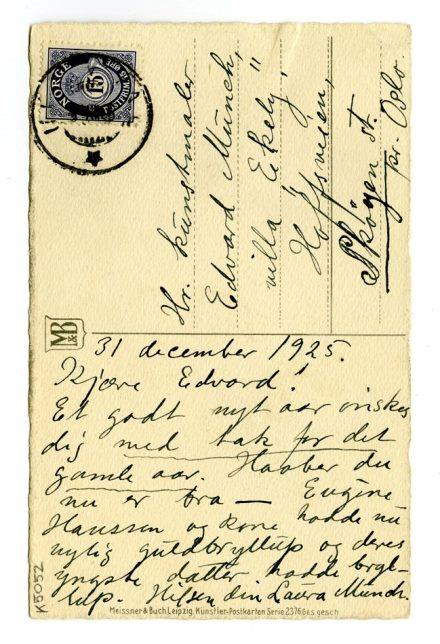 NORGE
15
Hr. kunstmaler
Edvard Munch,
villa "Ekely"
Hoffsveien,
Skøyen st.
pr. Oslo.
M&B
31 december 1925.
Kjære Edvard!
Et godt nyt aar ønskes
dig med tak for det
gamle aar. Haaber du
nu er bra — Eugène
Hanssen og kone hadde nu
nylig guldbryllup og deres
yngste datter hadde bryl-
lup. Hilsen din Laura Munch.
K5052
Meissner & Buch, Leipzig. Künstler-Postkarten Serie 2376. Ges. gesch.